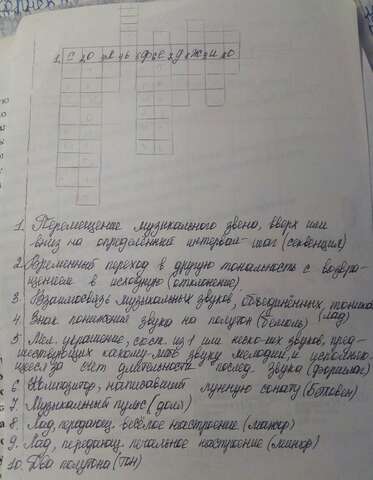 1. С О Л Ь Ф Е Д Ж И О
1. Перемещение музикального звена, вверх или
вниз на определённый интервал - шаг (секвенция)
2. Временный переход в другую тональность с возвра-
щением в исходную (отклонение)
3. Взаимосвязь музыкальных звуков, объединённых тоникой
(лад)
4. Знак понижения звука на полутон (бемоль)
5. Мел. украшение, сост. из 1 или неско-их звуков, пред-
шествующих какому-либо звуку мелодии, и исполняю-
щееся за счет длительности послед. звука (форшлаг)
6. Композитор, написавший лунную сонату (Бетховен)
7. Музикальный пульс (доля)
8. Лад, передающ. весёлое настроение (мажор)
9. Лад, передающ. печальное настроение (минор)
10. Два полутона (тон)